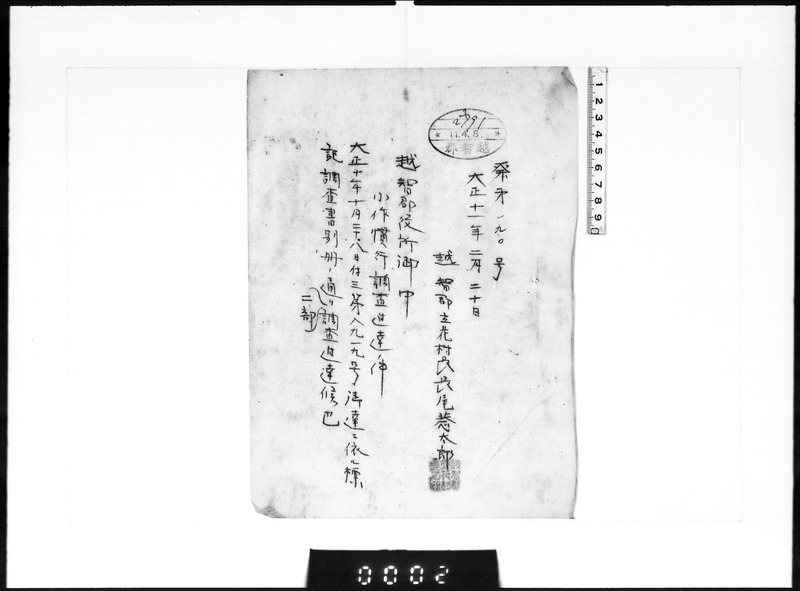 発第一九〇号
大正十一年二月二十日
越智郡立花村長長尾惣太郎
越智郡役所御中
小作慣行調査進達ノ件
大正十年十月二十八日付三第八九一九号御達ニ依ル標
記調査書別册ノ通リ調査進達候也
二部
11.4.8.
越智郡
1 2 3 4 5 6 7 8 9
0002